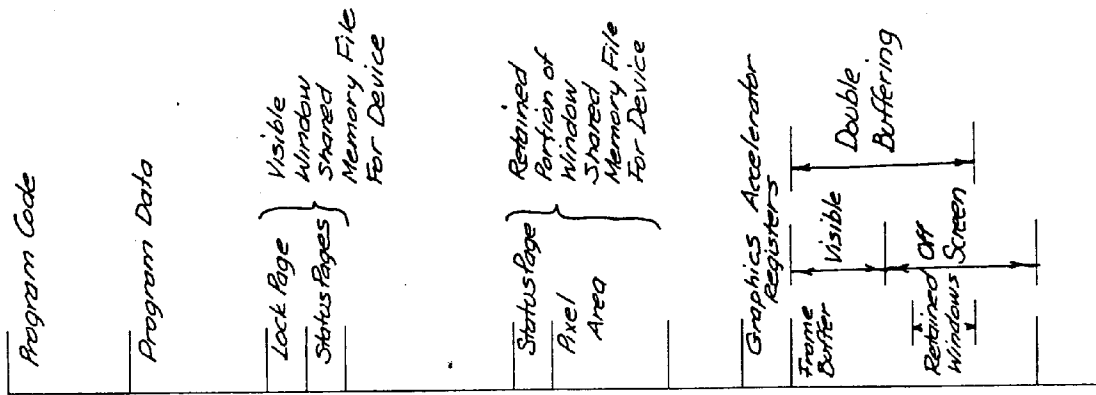 Program Code
Program Data
Lock Page
Status Pages
Visible
Window
Shared
Memory File
For Device
Status Page
Pixel
Area
Retained
Portion of
Window
Shared
Memory File
For Device
Graphics Accelerator
Registers
Frame
Buffer
Visible
Off
Screen
Retained
Windows
Double
Buffering